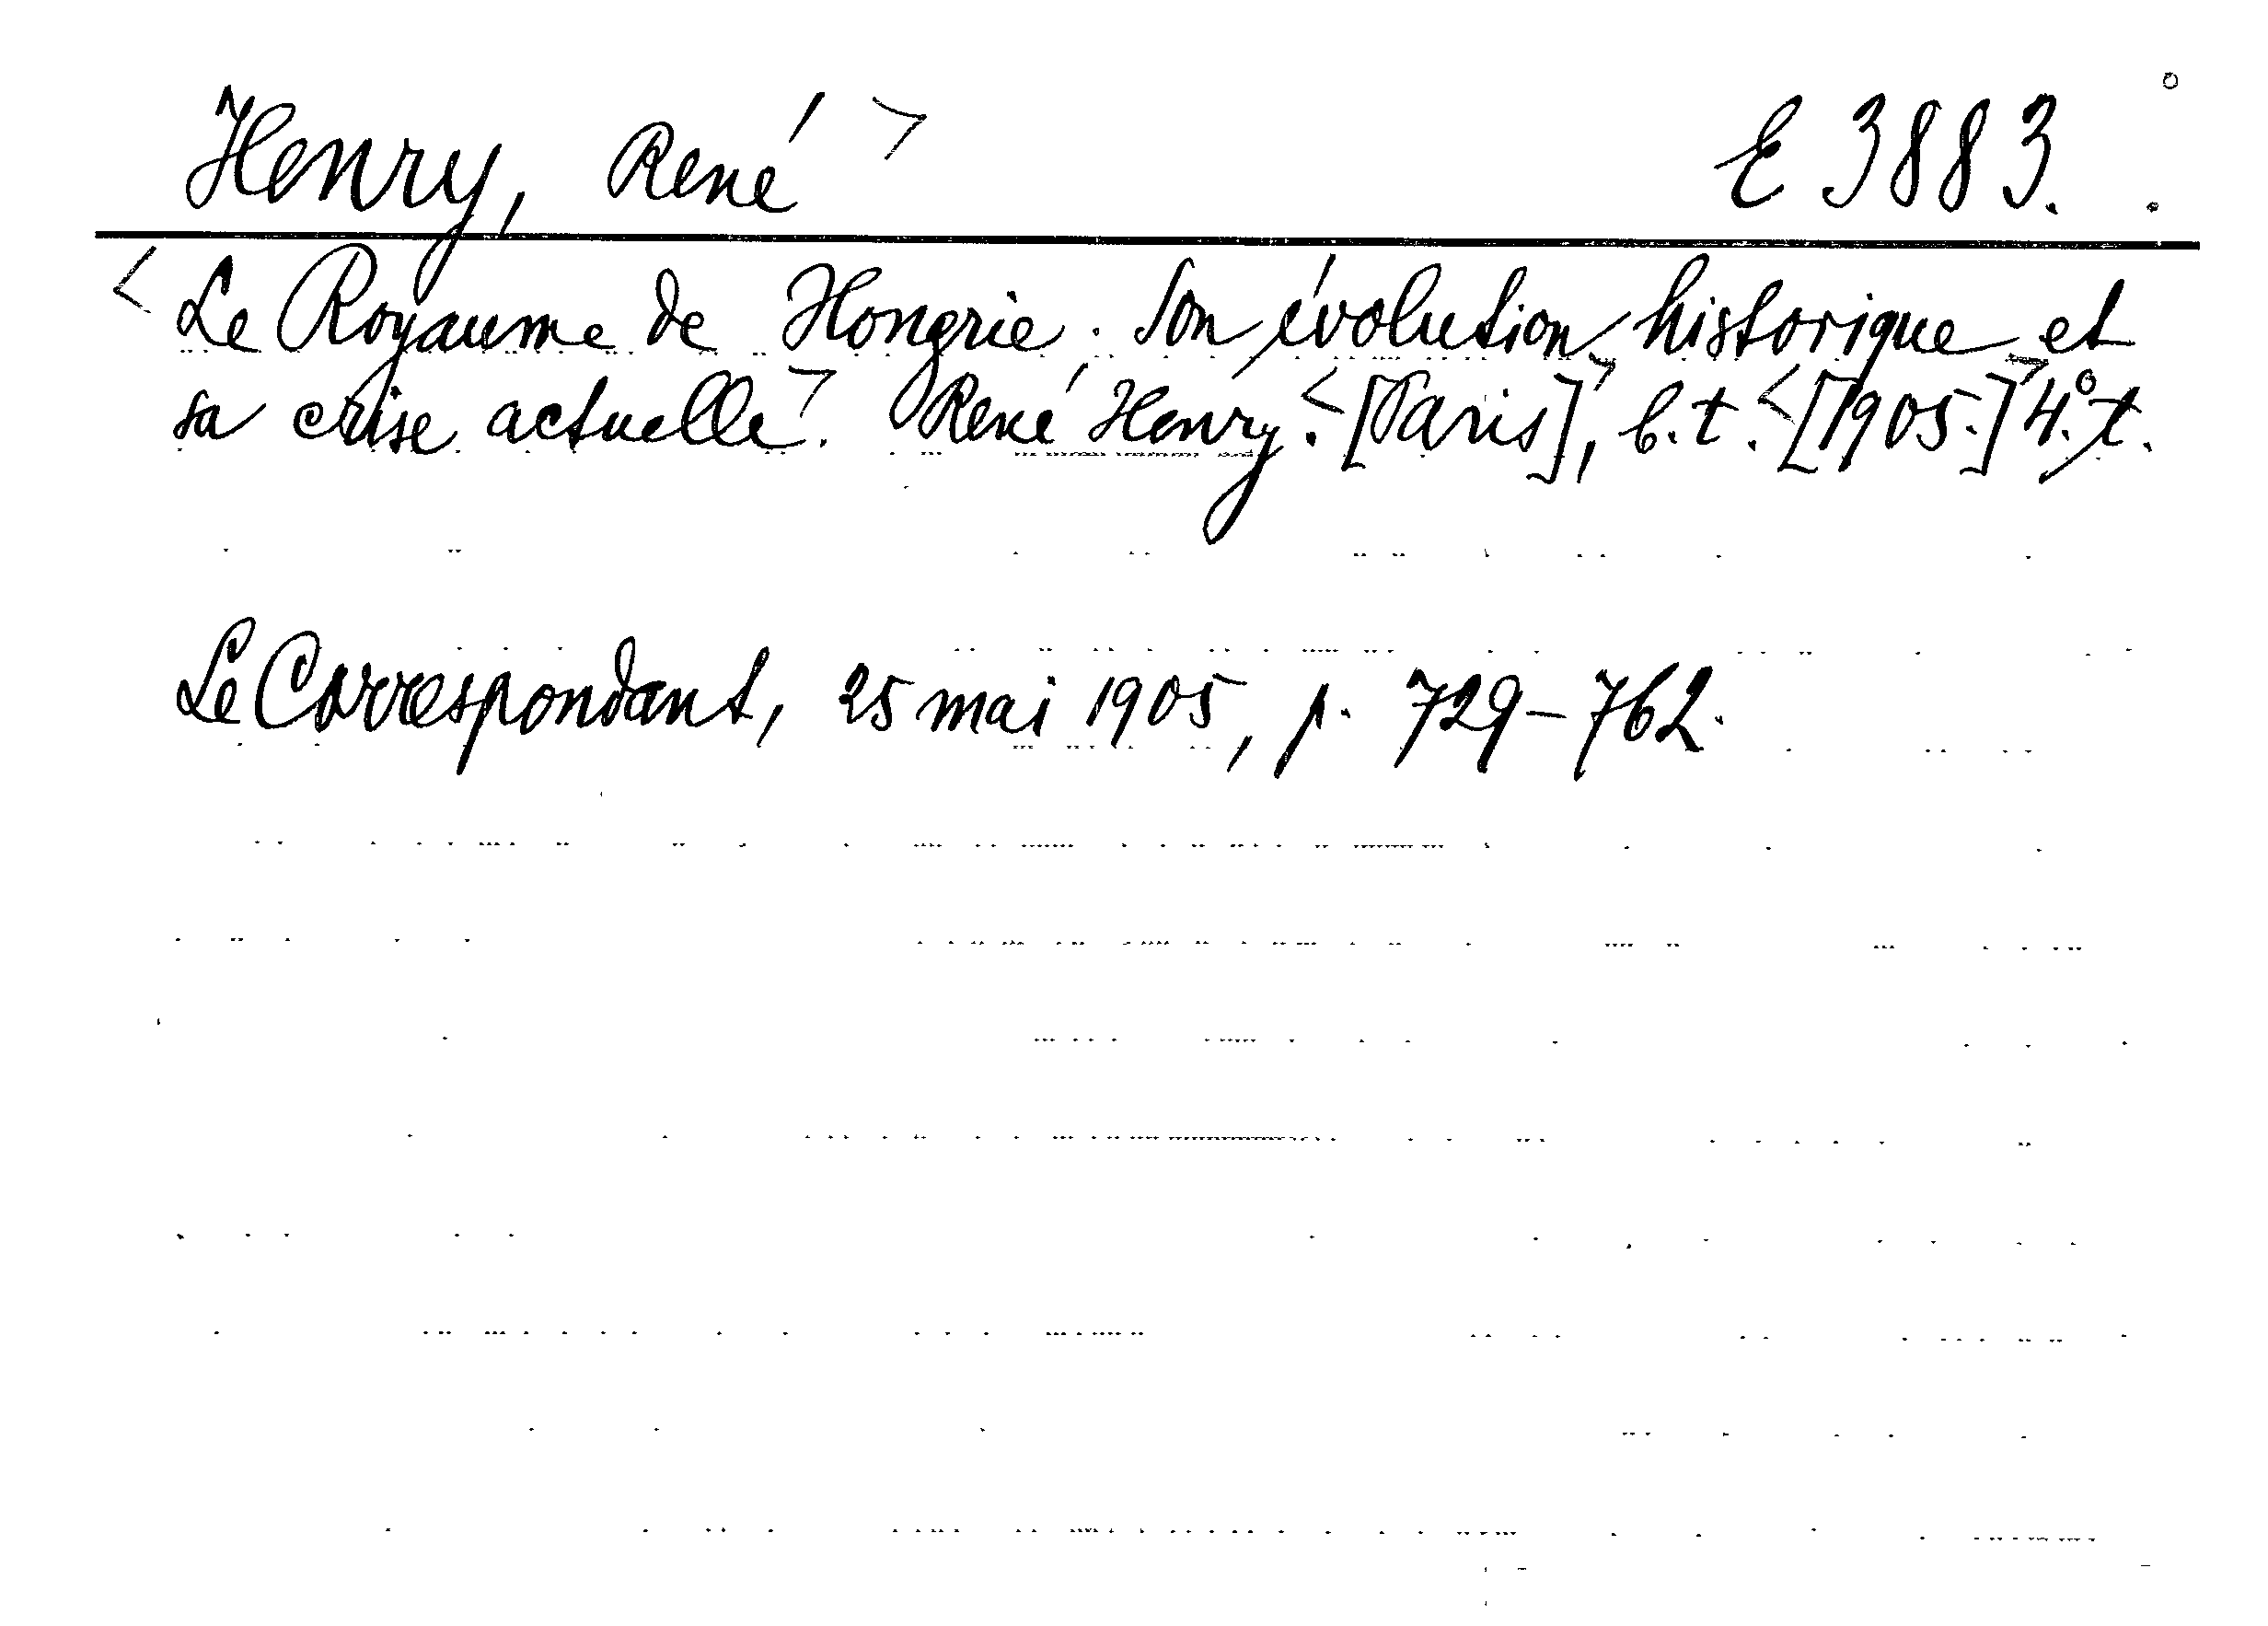 Henry, René > E 3883.
< Le Royaume de Hongrie. Son évolution historique et
sa crise actuelle. > René Henry. < [Paris], > b. t. < [1905.] > 4° t.
Le Correspondant, 25 mai 1905, p. 729-762.